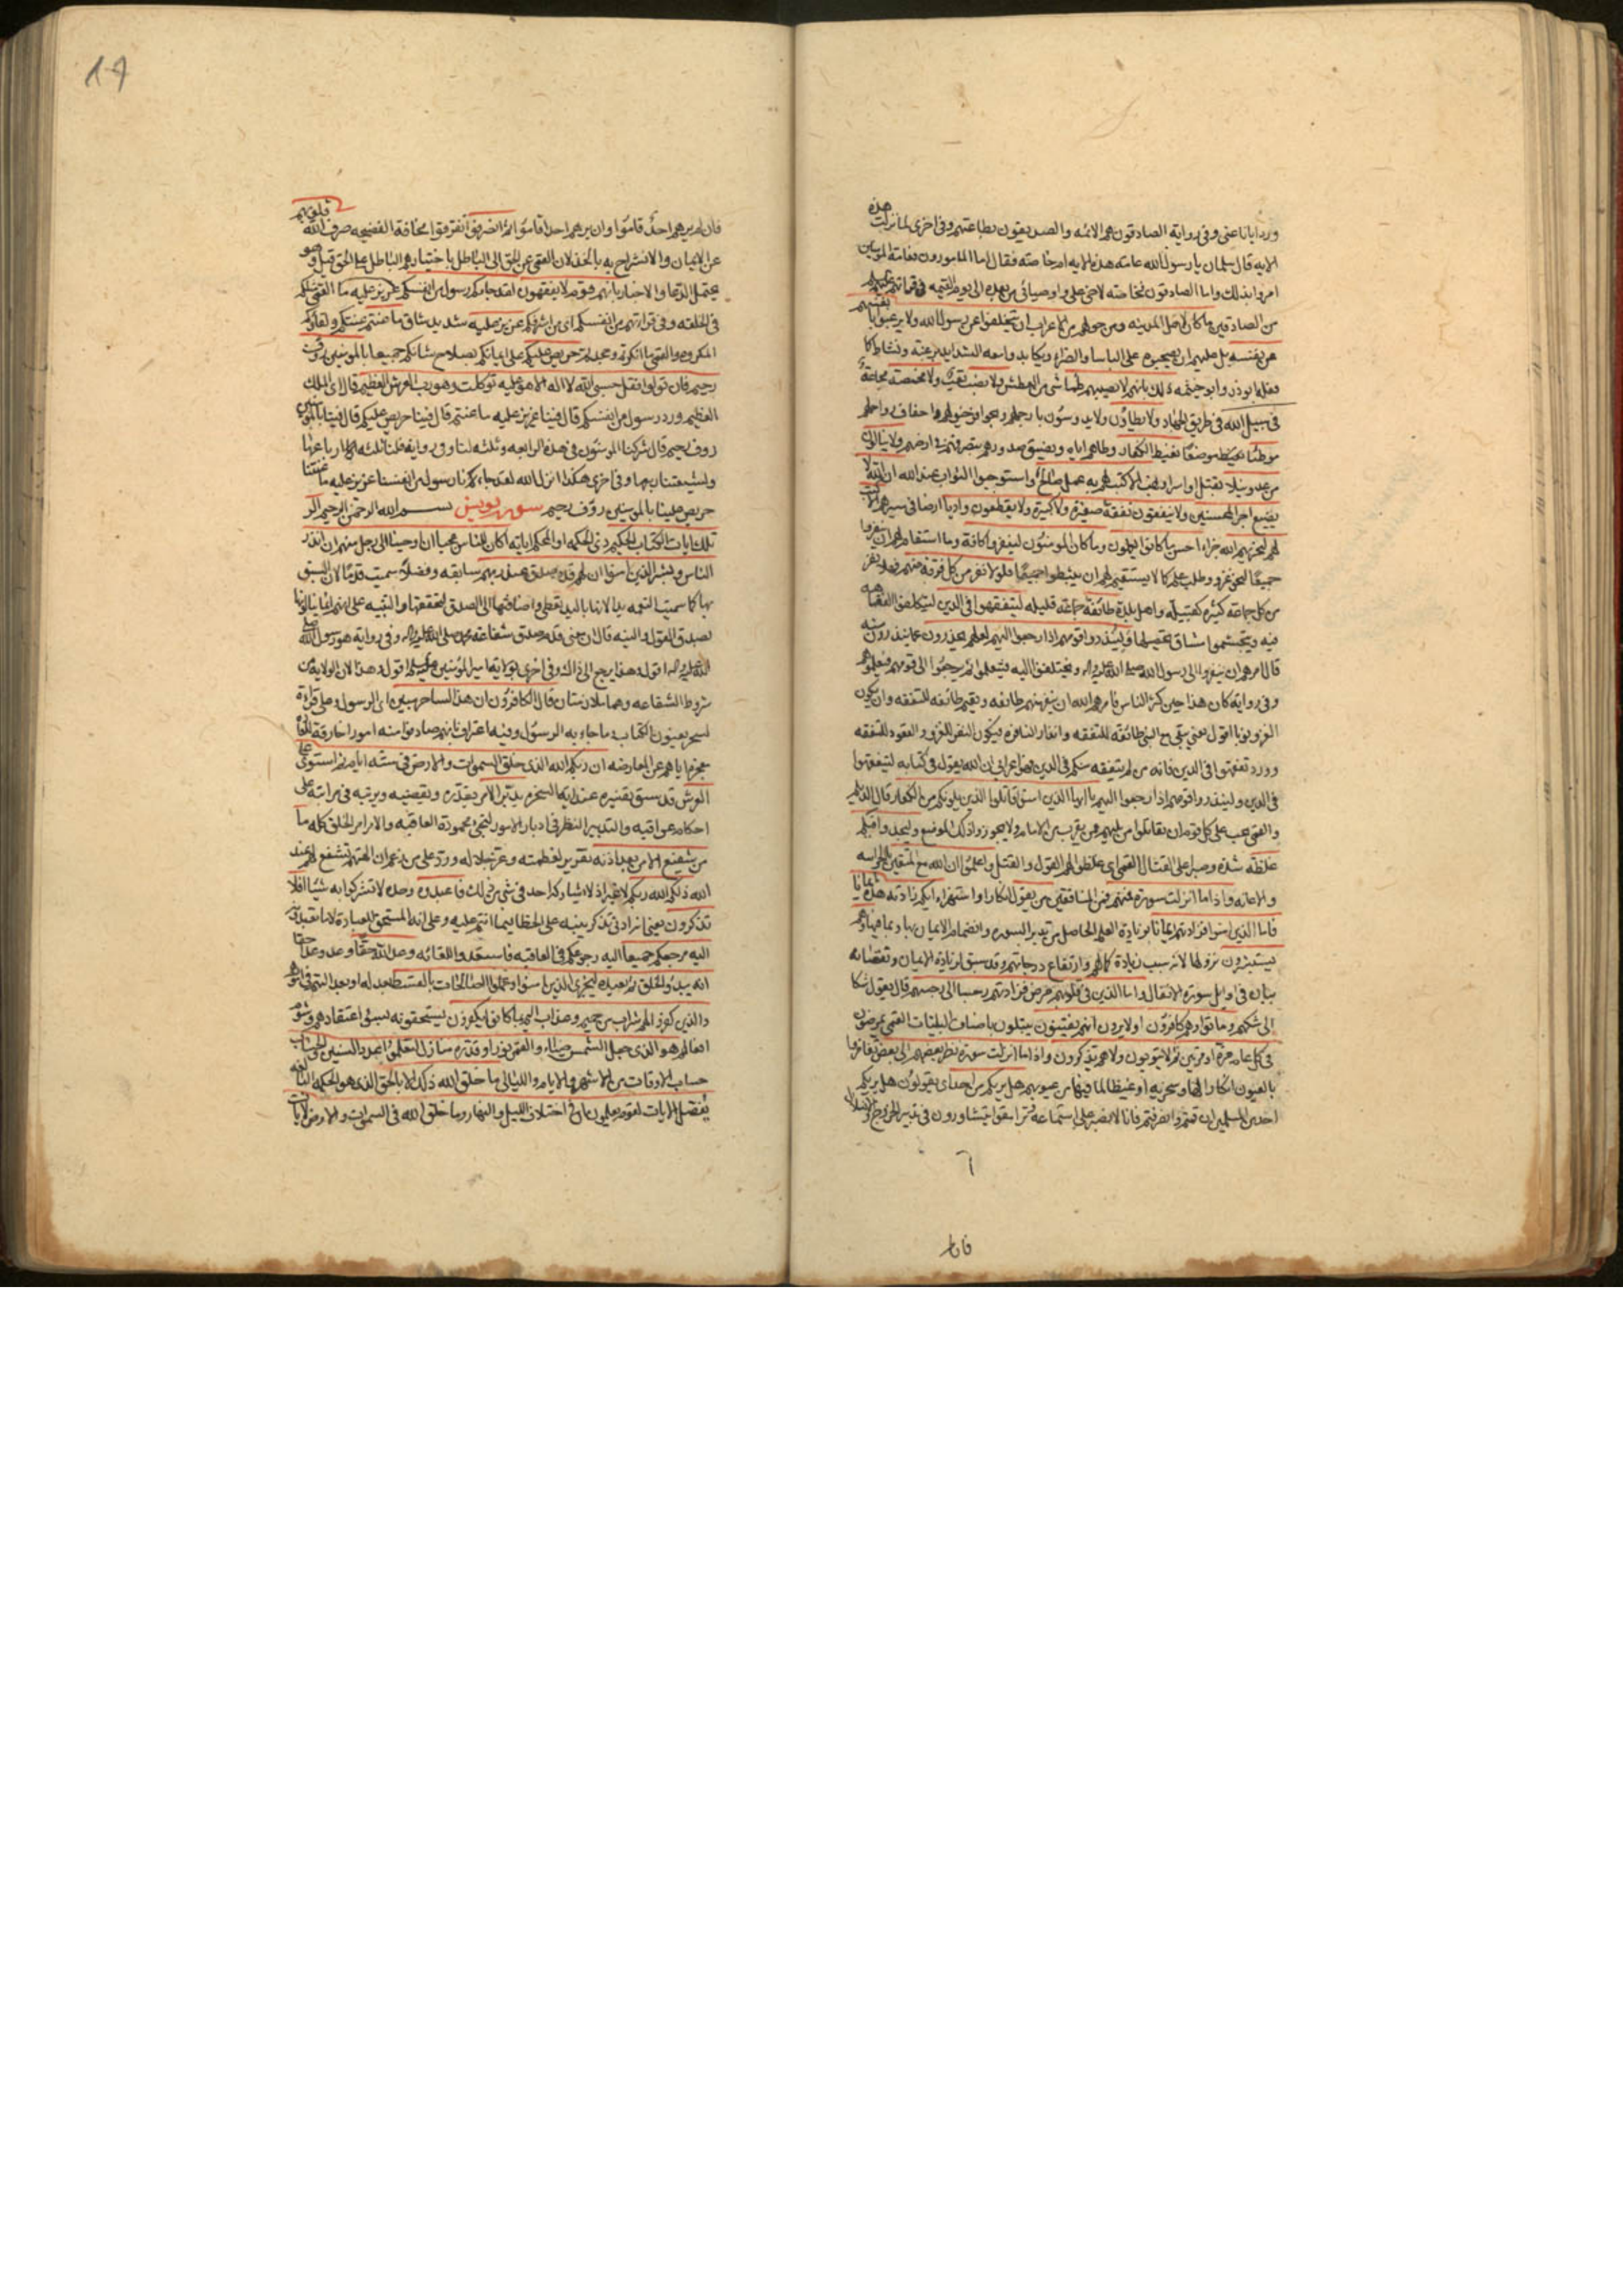 ورد ايانا عنى وفى رواية الصادقون هم الائمه والصديقون بطاعتهم وفى اخرى لما نزلت هذه
الايه قال سلمان يا رسول الله عامته هذه الايه ام خاصته فقال اما المامورون فعامة المومنين
امروا بذلك واما الصادقون فخاصته لاخى على واوصيائى من بعده الى يوم القيمه
من الصادقين ما كان لاهل المدينه ومن حولهم من الاعراب ان يتخلفوا عن رسول الله ولا يرغبوا بانفسهم
عن نفسه بل عليهم ان يصحبوه على الباسا والضراء ويكابدوا معه الشدايد برغبته ونشاط كما
فعله ابوذر وابو خيثمه ذلك بانهم لا يصيبهم ظما شىء من العطش ولا نصب تعب ولا مخمصة مجاعة
فى سبيل الله فى طريق الجهاد ولا يطاؤن ولا يدوسون بارجلهم وبحوافر خيولهم واخفاف رواحلهم
موطئا يغيظ الكفار وطاهم اياه ويضيق صدورهم بتصرفهم فى ارضهم ولا ينالون
من عدو نيلا بقتل او اسر او نهب الا كتب لهم به عمل صالح واستوجبوا الثواب عند الله ان الله لا
يضيع اجر المحسنين ولا ينفقون نفقة صغيرة ولا كبيرة ولا يقطعون واديا ارضا فى سيرهم الا كتب
لهم ليجزيهم الله جزاء احسن ما كانوا يعملون وما كان المومنون لينفروا كافة وما استقام لهم ان ينفروا
جميعا لنحو غزو وطلب علم كما لا يستقيم لهم ان يتثبطوا جميعا فلولا نفر من كل فرقة منهم فهلا نفر
من كل جماعة كثيره كقبيلة واهل بلدة طائفة جماعة قليله ليتفقهوا فى الدين ليتكلفوا الفقاهه
فيه ويتجشموا مشاق تحصيلها ولينذروا قومهم اذا رجعوا اليهم لعلهم يحذرون عما ينذرون منه
قال امرهم ان ينفروا الى رسول الله صلى الله عليه واله ويختلفوا اليه فيتعلموا ثم يرجعوا الى قومهم فيعلموهم
وفى روايه كان هذا حين كثر الناس فامرهم الله ان ينفر منهم طائفه وتقيم طائفه للتفقه وان يكون
الغزو نوبا اقول يعنى يبقى مع النبى طائفة للتفقه وانذار النافره فيكون النفر للغزو والقعود للتفقه
وورد تفقهوا فى الدين فانه من لم يتفقه منكم فى الدين فهو اعرابى ان الله يقول فى كتابه ليتفقهوا
فى الدين ولينذروا قومهم اذا رجعوا اليهم يا ايها الذين امنوا قاتلوا الذين يلونكم من الكفار قال الديلم
والقمى يجب على كل قوم ان يقاتلوا من يليهم ممن يقرب من الامام ولا يجوزوا ذلك الموضع وليجدوا فيكم
غلظة شدة وصبرا على القتال القمى اى غلظوا لهم القول والقتل واعلموا ان الله مع المتقين بالحراسه
والاعانه واذا ما انزلت سورة فمنهم فمن المنافقين من يقول انكارا واستهزاء ايكم زادته هذه ايمانا
فاما الذين امنوا فزادتهم ايمانا بزيادة العلم الحاصل من تدبر السوره وانضمام الايمان بها وبما فيها وهم
يستبشرون بنزولها لانه سبب زيادة كمالهم وارتفاع درجاتهم وقد سبق لزيادة الايمان ونقصانه
بيان فى اوايل سورة الانفال واما الذين فى قلوبهم مرض فزادتهم رجسا الى رجسهم قال يقول شكا
الى شكهم وماتوا وهم كافرون اولا يرون انهم يفتنون يبتلون باصناف البليات القمى يمرضون
فى كل عام مرة او مرتين ثم لا يتوبون ولا هم يذكرون واذا ما انزلت سورة نظر بعضهم الى بعض تغامزوا
بالعيون انكارا لها وسخريه او غيظا لما فيها من عيوبهم هل يريكم من احد اى يقولون هل يريكم
احد من المسلمين ان قمتم وانصرفتم فانا لا نصبر على استماعه وترامقوا يتشاورون فى تدبير الخروج
فان
فان لم يرهم احد قاموا وان يرهم احد اقاموا ثم انصرفوا تفرقوا مخافة الفضيحه صرف الله قلوبهم
عن الايمان والانشراح به بالخذلان القمى عن الحق الى الباطل باختيارهم الباطل على الحق قيل وهو
يحتمل الدعا والاخبار بانهم قوم لا يفقهون لقد جاءكم رسول من انفسكم القمى مثلكم
فى الخلقه وفى قرائتهم من انفسكم اى من اشرفكم عزيز عليه شديد شاق ما عنتم عنتكم ولقاؤكم
المكروه والقمى ما انكرتم وجحدتم حريص عليكم على ايمانكم بصلاح شانكم جميعا بالمومنين رؤف
رحيم فان تولوا فقل حسبى الله لا اله الا هو عليه توكلت وهو رب العرش العظيم قال اى الملك
العظيم ورد رسول من انفسكم قال فينا عزيز عليه ما عنتم قال فينا حريص عليكم قال فينا بالمومنين
رؤف رحيم قال شركنا المومنون فى هذه الرابعه وثلثه لنا وفى روايه فلنا ثلثه ارباعها
ولشيعتنا ربعها وفى اخرى هكذا انزل الله لقد جاءنا رسول من انفسنا عزيز عليه ما عنتنا
حريص علينا بالمومنين رؤف رحيم سورة يونس بسم الله الرحمن الرحيم الر
تلك ايات الكتاب الحكيم ذى الحكمه او المحكم اياته اكان للناس عجبا ان اوحينا الى رجل منهم ان انذر
الناس وبشر الذين امنوا ان لهم قدم صدق عند ربهم سابقه وفضلا سميت قدما لان السبق
بها كما سميت النعمه يدا لانها باليد تعطى واضافتها الى الصدق لتحققها والتنبيه على انهم انما ينالونها
بصدق القول والنيه قال ان معنى قدم صدق شفاعة محمد صلى الله عليه واله وفى رواية هو رسول الله صلى
الله عليه واله اقول وهذا يرجع الى ذلك وفى اخرى بولاية امير المؤمنين عليه السلم اقول وهذا لان الولاية من
شروط الشفاعه وهما متلازمتان قال الكافرون ان هذا لساحر مبين اى الرسول وعلى قراءة
لسحر يعنون الكتاب وما جاء به الرسول وفيه اعتراف بانهم صادفوا منه امورا خارقة للعادة
معجزة اياهم عن المعارضه ان ربكم الله الذى خلق السموات والارض فى ستة ايام ثم استوى على
العرش قد سبق تفسيره عند اية السخره يدبر الامر يقدره ويقضيه ويرتبه فى مراتبه على
احكام عواقبه والتدبير النظر فى ادبار الامور لتجئ محمودة العاقبه والامر امر الخلق كله ما
من شفيع الا من بعد اذنه تقرير لعظمته وعز جلاله ورد على من زعم ان الهتهم تشفع لهم عند
الله ذلكم الله ربكم لا غير اذ لا يشاركه احد فى شىء من ذلك فاعبدوه وحده لا تشركوا به شيئا افلا
تذكرون يعنى انه ادنى تذكر ينبه على الخطا فيما انتم عليه وعلى انه المستحق للعبادة لا ما تعبدونه
اليه مرجعكم جميعا اليه رجوعكم فى العاقبه فاستعدوا للقائه وعد الله حقا وعد وعدا حقا
انه يبدؤ الخلق ثم يعيده ليجزى الذين امنوا وعملوا الصالحات بالقسط بعدله
والذين كفروا لهم شراب من حميم وعذاب اليم بما كانوا يكفرون يستحقونه بسوء اعتقادهم وشوم
افعالهم هو الذى جعل الشمس ضياء والقمر نورا وقدره منازل لتعلموا عدد السنين والحساب
حساب الاوقات من الاشهر والايام والليالى ما خلق الله ذلك الا بالحق الذى هو الحكمه البالغه
يفصل الايات لقوم يعلمون ان فى اختلاف الليل والنهار وما خلق الله فى السموات والارض لايات